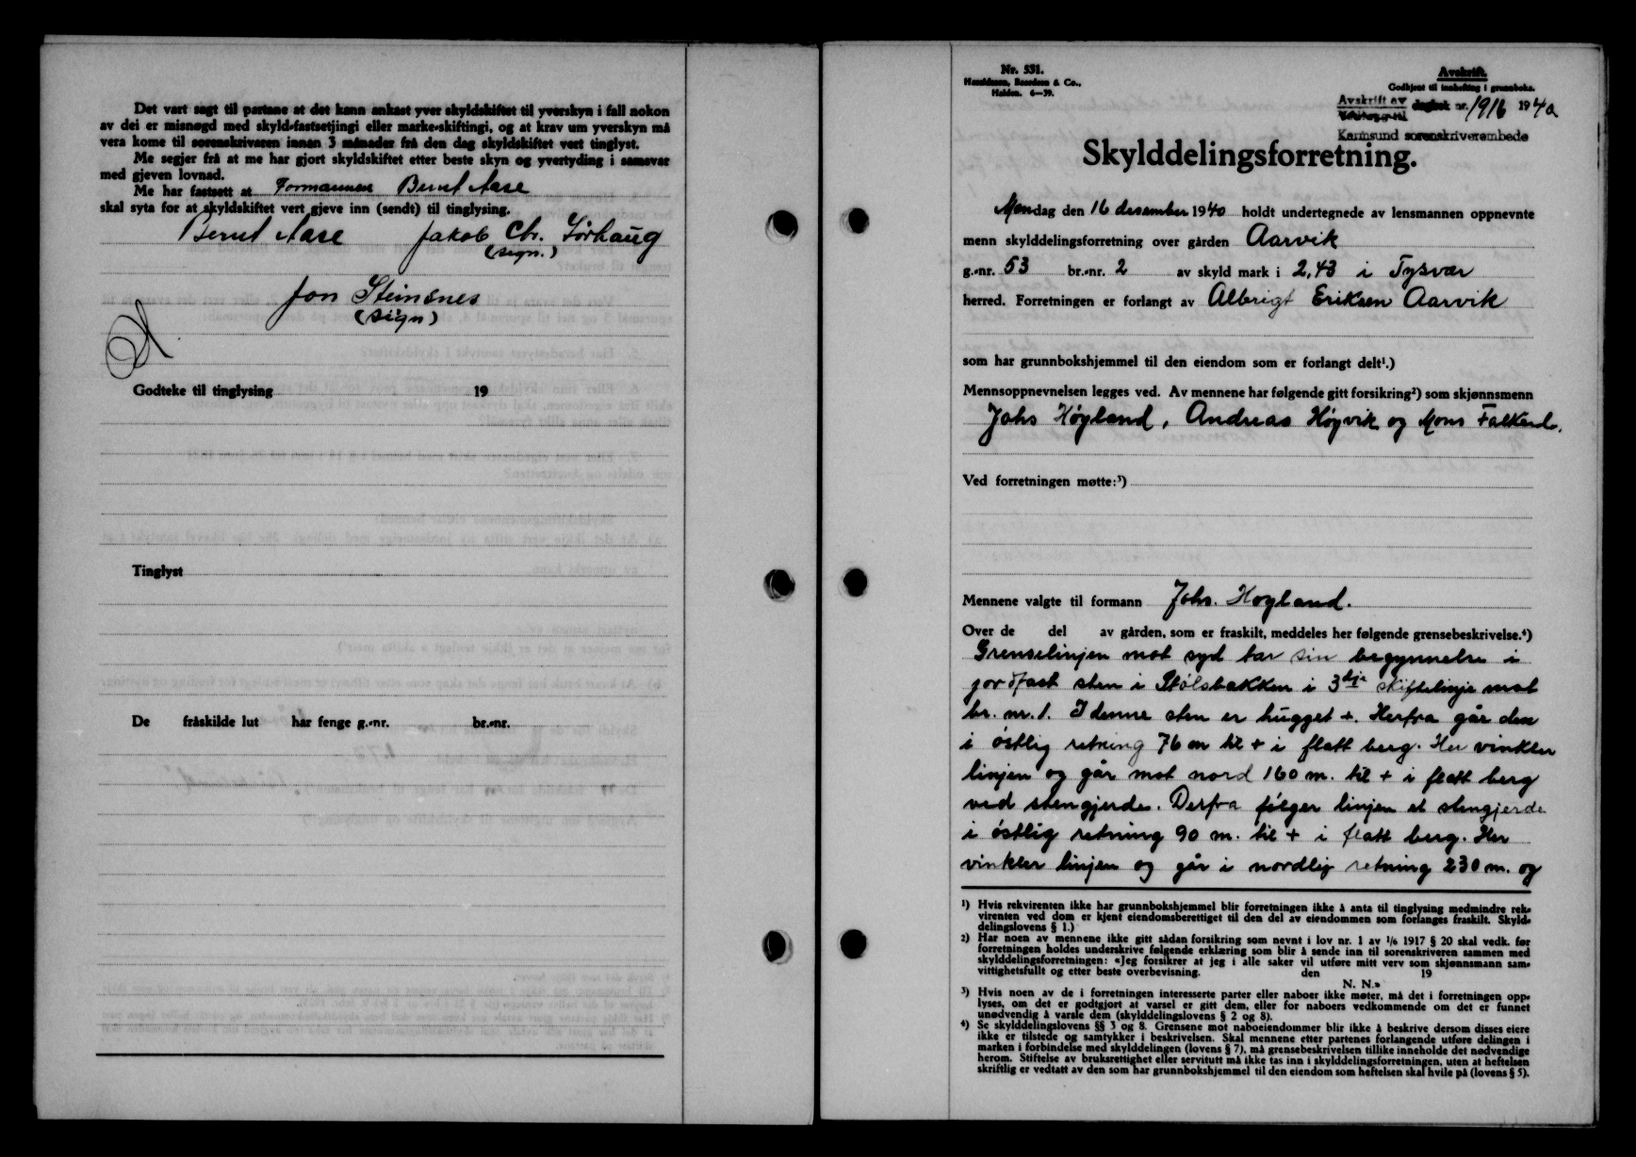 Det vart sagt til partane at det kann ankast yver skyldskiftet til yverskyn i fall nokon
av dei er misnøgd med skyld-fastsetjingi eller marke-skiftingi, og at krav um yverskyn må
vera kome til sorenskrivaren innan 3 månader frå den dag skyldskiftet vert tinglyst.
Me segjer frå at me har gjort skyldskiftet etter beste skyn og yvertyding i samsvar
med gjeven lovnad.
Me har fastsett at Formannen Bernt Aase
skal syta for at skyldskiftet vert gjeve inn (sendt) til tinglysing.
Bernt Aase Jakob Chr. Sørhaug
(sign.)
Jon Steinsnes
(sign)
Godteke til tinglysing 19
Tinglyst
De fråskilde lut har fenge g.-nr. br.-nr.
Nr. 531.
Halden. 6-39.
Avskrift.
Godkjent til innhefting i grunnboka.
Avskrift av dagbok nr. 1916 1940
Karmsund sorenskriverembede
Skylddelingsforretning.
Mandag den 16 desember 1940 holdt undertegnede av lensmannen oppnevnte
menn skylddelingsforretning over gården Aarvik
g.-nr. 53 br.-nr. 2 av skyld mark i 2,43 i Tysvær
herred. Forretningen er forlangt av Albrigt Eriksen Aarvik
som har grunnbokshjemmel til den eiendom som er forlangt delt¹.)
Mennsoppnevnelsen legges ved. Av mennene har følgende gitt forsikring²) som skjønnsmenn
Johs Høgland, Andreas Høgvik og Mons
Ved forretningen møtte:³)
Mennene valgte til formann Johs. Høgland.
Over de del av gården, som er fraskilt, meddeles her følgende grensebeskrivelse.⁴)
Grenselinjen mot syd tar sin begynnelse i
jordfast sten i Stölsbakken i 3die skiftelinje mot
br. nr. 1. I denne sten er hugget +. Herfra går den
i östlig retning 76 m til + i flatt berg. Her vinkler
linjen og går mot nord 160 m. til + i flatt berg
ved stengjerde. Derfra fölger linjen et stengjerde
i östlig retning 90 m. til + i flatt berg. Her
vinkler linjen og går i nordlig retning 230 m. og
¹) Hvis rekvirenten ikke har grunnbokshjemmel blir forretningen ikke å anta til tinglysing medmindre rek-
virenten ved dom er kjent eiendomsberettiget til den del av eiendommen som forlanges fraskilt. Skyld-
delingslovens § 1.)
²) Har noen av mennene ikke gitt sådan forsikring som nevnt i lov nr. 1 av 1/6 1917 § 20 skal vedk. før
forretningen holdes underskrive følgende erklæring som blir å sende inn til sorenskriveren sammen med
skylddelingsforretningen: «Jeg forsikrer at jeg i alle saker vil utføre mitt verv som skjønnsmann sam-
vittighetsfullt og etter beste overbevisning. den 19
N. N.»
³) Hvis noen av de i forretningen interesserte parter eller naboer ikke møter, må det i forretningen opp-
lyses, om det er godtgjort at varsel er gitt dem, eller for naboers vedkommende om det er funnet
unødvendig å varsle dem (skylddelingslovens § 2 og 8).
⁴) Se skylddelingslovens §§ 3 og 8. Grensene mot naboeiendommer blir ikke å beskrive dersom disses eiere
ikke er tilstede og samtykker i beskrivelsen. Skal mennene etter partenes forlangende utføre delingen i
marken i forbindelse med skylddelingen (lovens § 7), må grensebeskrivelsen tillike inneholde det nødvendige
herom. Stiftelse av bruksrettighet eller servitutt må ikke tas inn i skylddelingsforretningen, uten at heftelsen
skriftlig er vedtatt av den som har grunnbokshjemmel til den eiendom som heftelsen skal hvile på (lovens § 5).